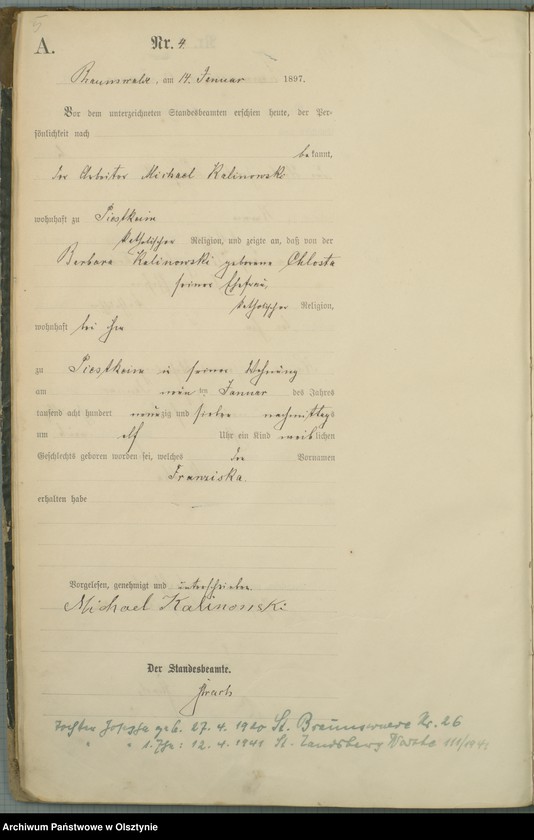 5
A.
Nr. 4
Braunswalde, am 14. Januar 1897.
Vor dem unterzeichneten Standesbeamten erschien heute, der Per-
sönlichkeit nach
be kannt,
der Arbeiter Michael Kalinowski
wohnhaft zu Piestkeim
katholischer Religion, und zeigte an, daß von der
Barbara Kalinowski geborene Chlosta
seiner Ehefrau,
katholischer Religion,
wohnhaft bei ihm
zu Piestkeim in seiner Wohnung
am neunten Januar des Jahres
tausend acht hundert neunzig und sieben nachmittags
um elf Uhr ein Kind weiblichen
Geschlechts geboren worden sei, welches den Vornamen
Franziska
erhalten habe
Vorgelesen, genehmigt und unterschrieben.
Michael Kalinowski
Der Standesbeamte.
Tochter geb. 27. 4. 1920 St. Braunswalde Nr. 26
" " 1. Ehe: 12. 4. 1941 St. Landsberg Warthe 111/1941
Archiwum Państwowe w Olsztynie